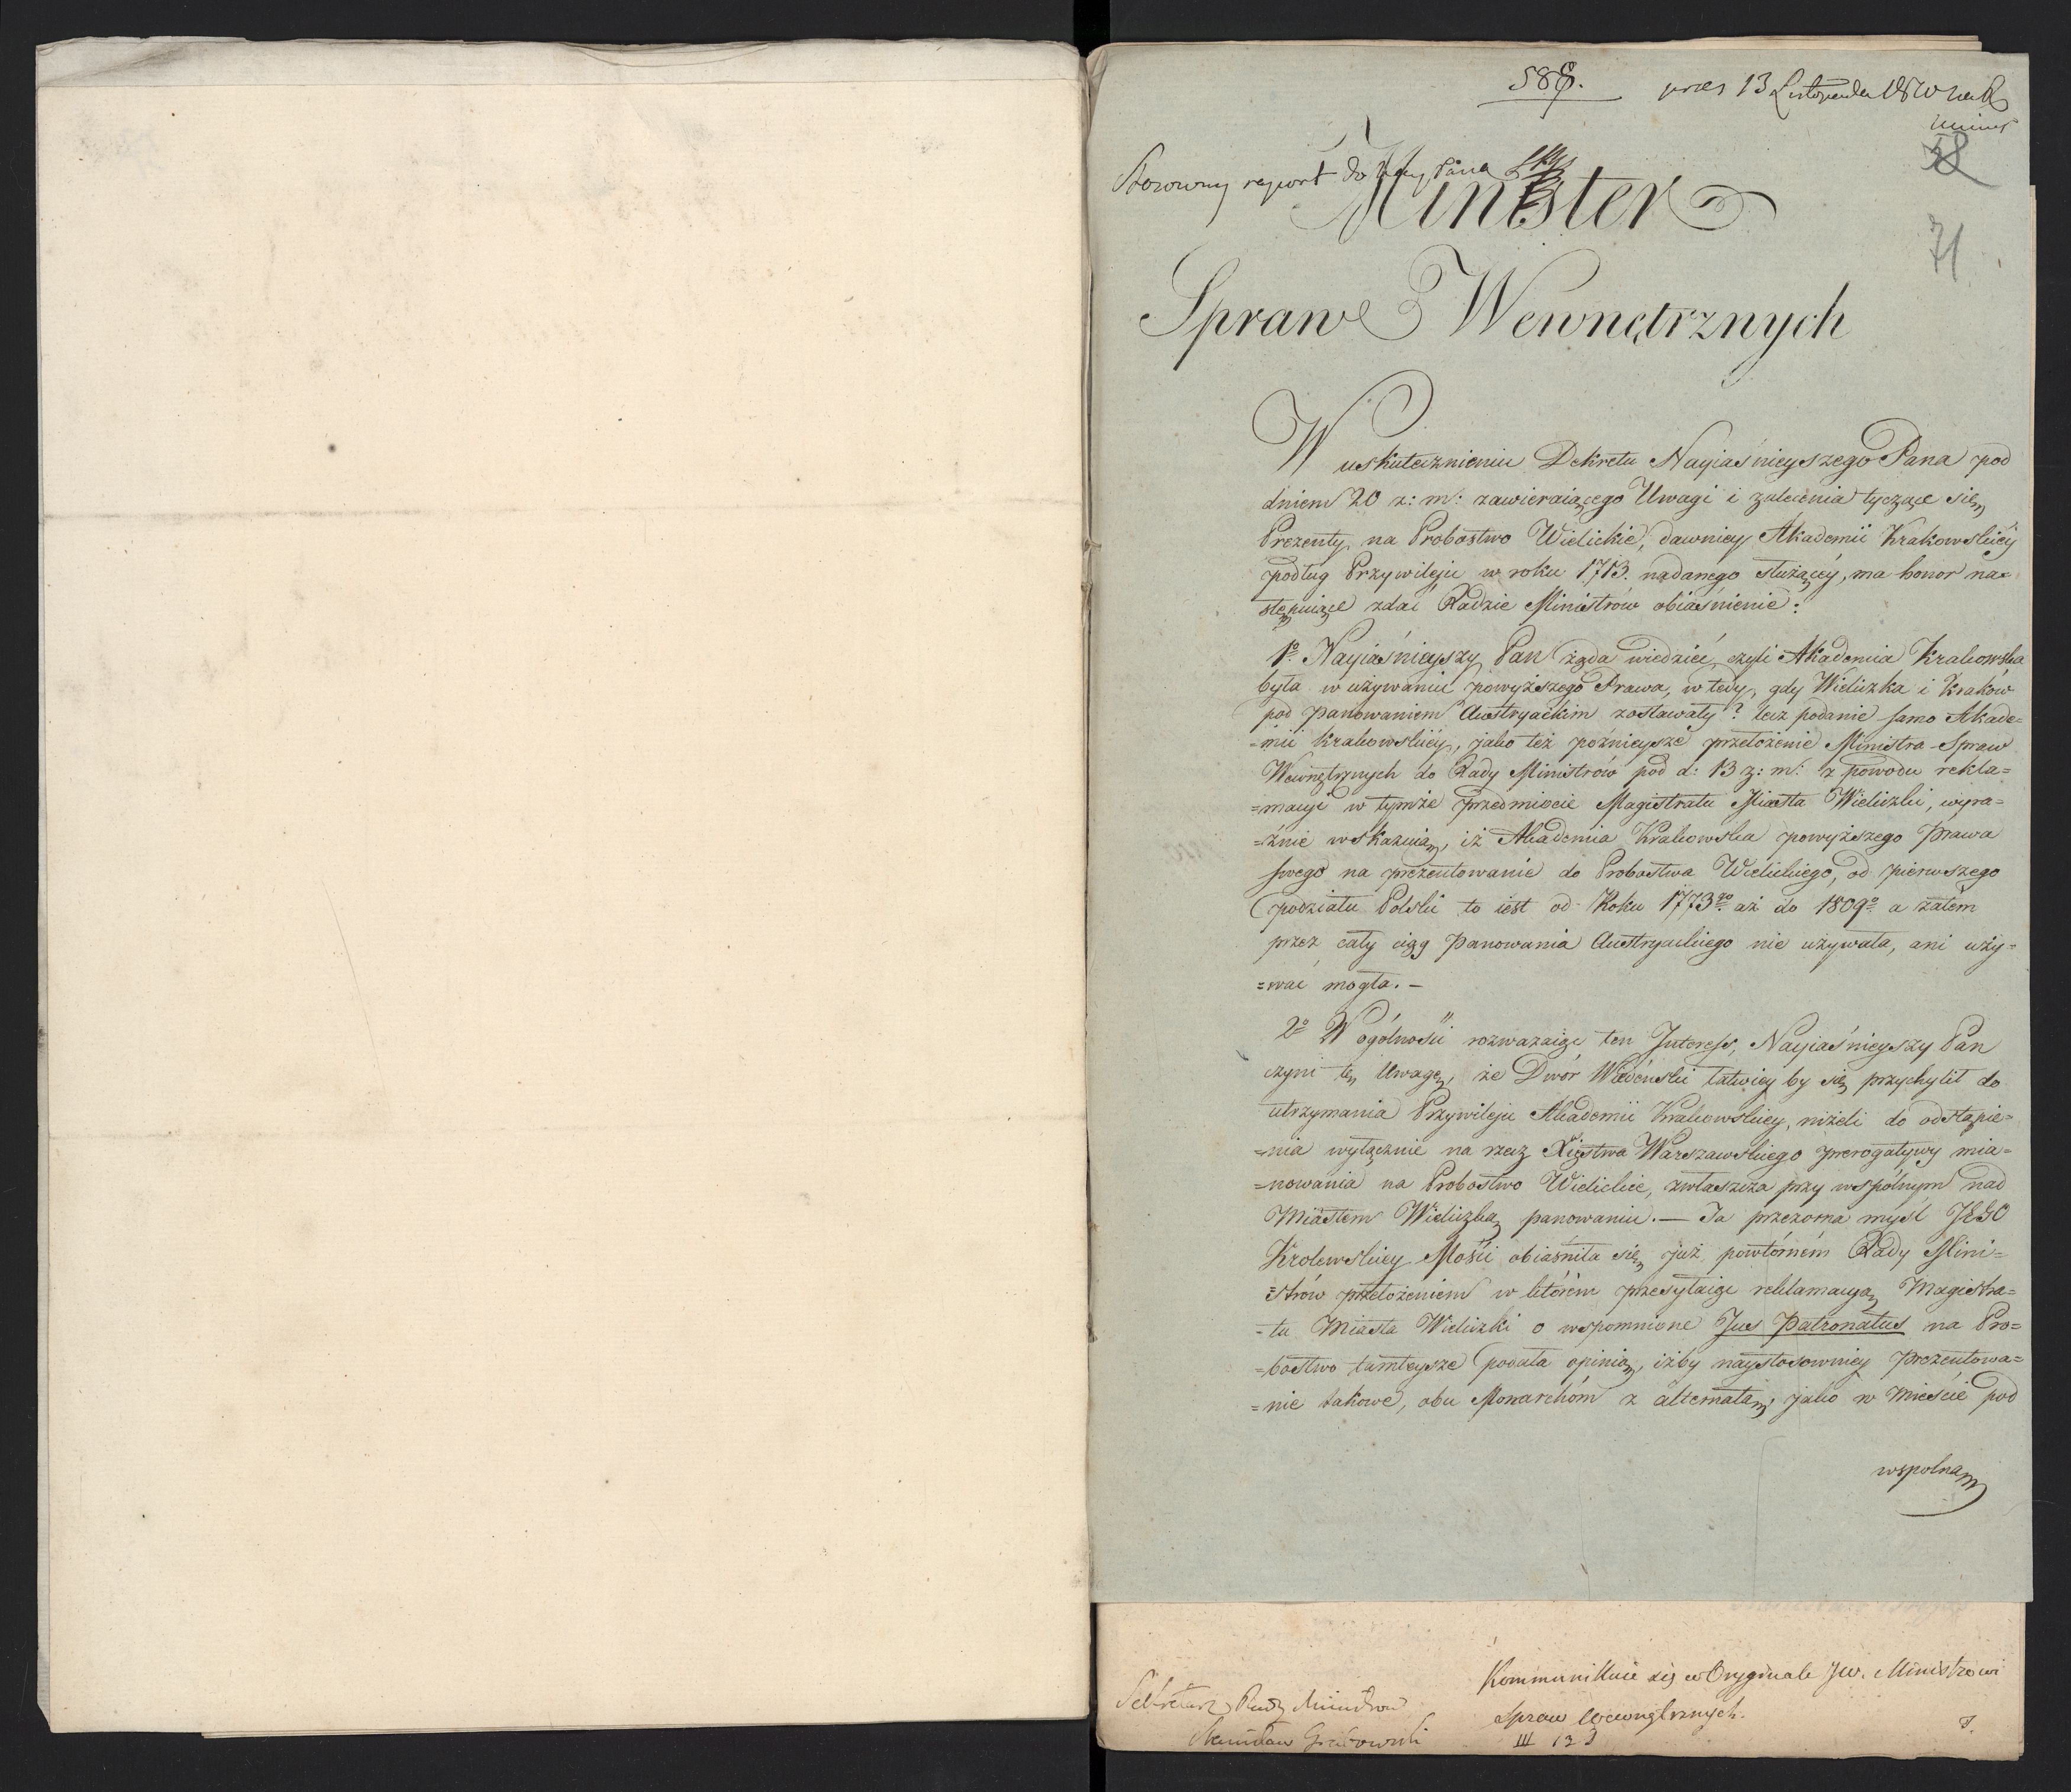 588.
pres 13 Listopada 1810 na R
Minis
38
Stosowny raport do Nay Pana
71
Minister
Spraw Wewnętrznych
W uskutecznieniu Dekretu Nayiaśnieyszego Pana pod
dniem 20 z: m: zawieraiącego Uwagi i zalecenia tyczące się
Prezenty na Probostwo Wielickie, dawniey Akademii Krakowskiey
podług Przywileju w roku 1713. nadanego służącéy, ma honor na=
stępuiące zdać Radzie Ministrów obiaśnienie:
1º Nayiaśnieyszy Pan żąda wiedzieć, czyli Akademia Krakowska
była w używaniu powyższego Prawa, wtedy, gdy Wieliczka i Kraków
pod Panowaniem Austryackim zostawały? lecz podanie samo Akade=
=mii Krakowskiéy, jako też poźnieysze przełożenie Ministra Spraw
Wewnętrznych do Rady Ministrów pod d: 13 z: m: z powodu rekla=
=macyi w tymże przedmiocie Magistratu Miasta Wieliczki, wyra=
=źnie wskazuią, iż Akademia Krakowska powyższego Prawa
swego na prezentowanie do Probostwa Wielickiego, od pierwszego
podziału Polski to iest od Roku 1773go aż do 1809º a zatém
przez cały ciąg Panowania Austryackiego nie używała, ani uży=
=wać mogła. –
2º W ogólności rozważaiąc ten Interess, Nayiaśnieyszy Pan
czyni tę Uwagę, że Dwór Wiedeński łatwiey by się przychylił do
utrzymania Przywileju Akademii Krakowskiey, niżeli do odstąpie=
=nia wyłącznie na rzecz Xięstwa Warszawskiego prerogatywy mia=
=nowania na Probostwo Wielickie, zwłaszcza przy wspólnym nad
Miastem Wieliczką panowaniu. — Ta przezorna myśl JEGO
Krolewskiey Mości obiaśniła się już powtórném Rady Mini=
=strów przełożeniem w którém przesyłaiąc reklamacyą Magistra=
=tu Miasta Wieliczki o wspomnione Jus Patronatus na Pro=
=bostwo tamteysze podała opinią, iżby naystosowniey Prezentowa=
=nie takowe, obu Monarchóm z alternatą, jako w Mieście pod
wspolną
Kommunikuie się w Oryginale JW. Ministrowi
Spraw Wewnętrznych.
Sekretarz Rady Ministrów
Stanisław Grabowski
III 123